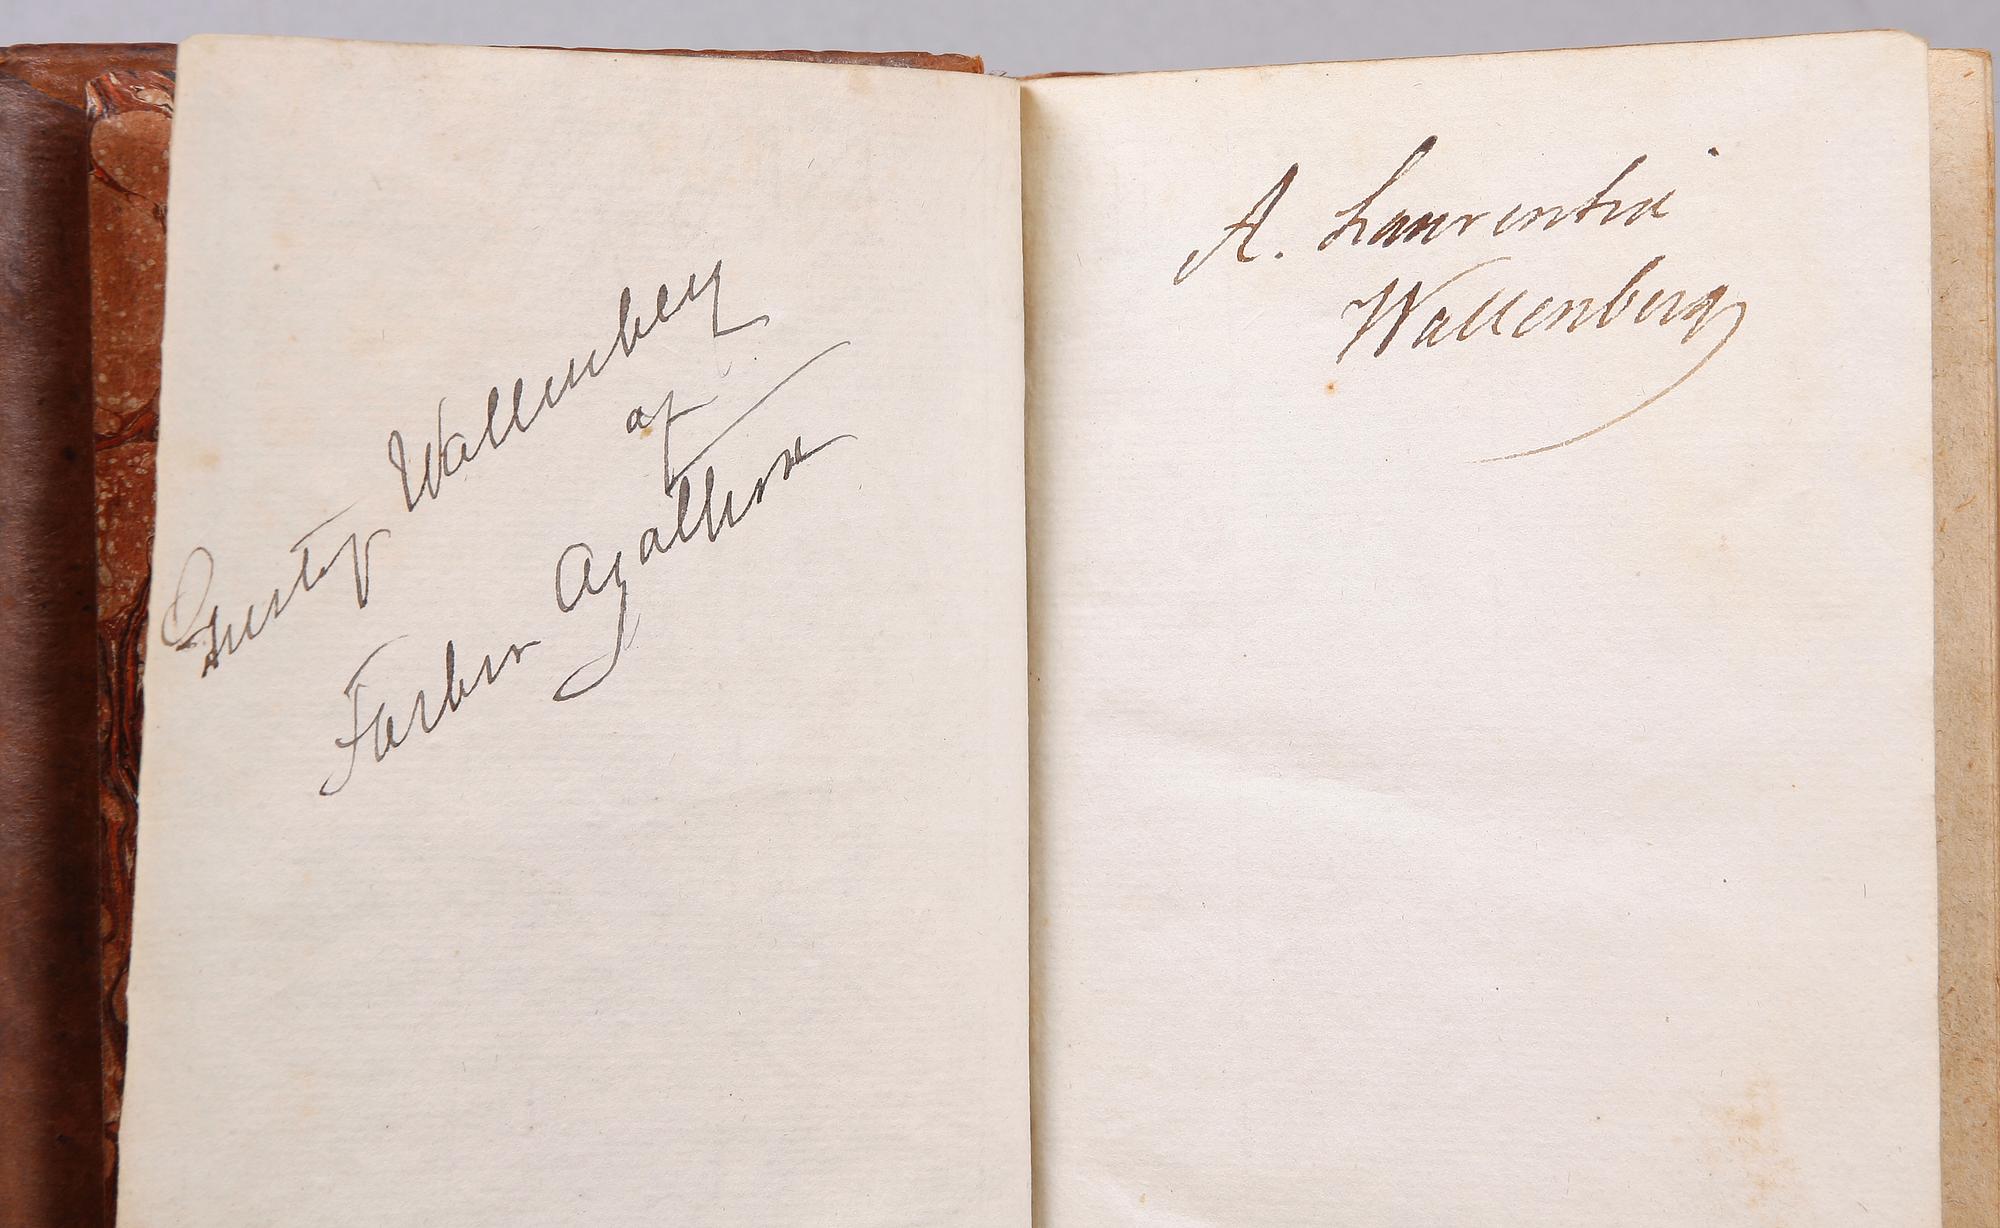 Gustaf Wallenberg
af
Farbror Agathon
A. Laurentia
Wallenberg